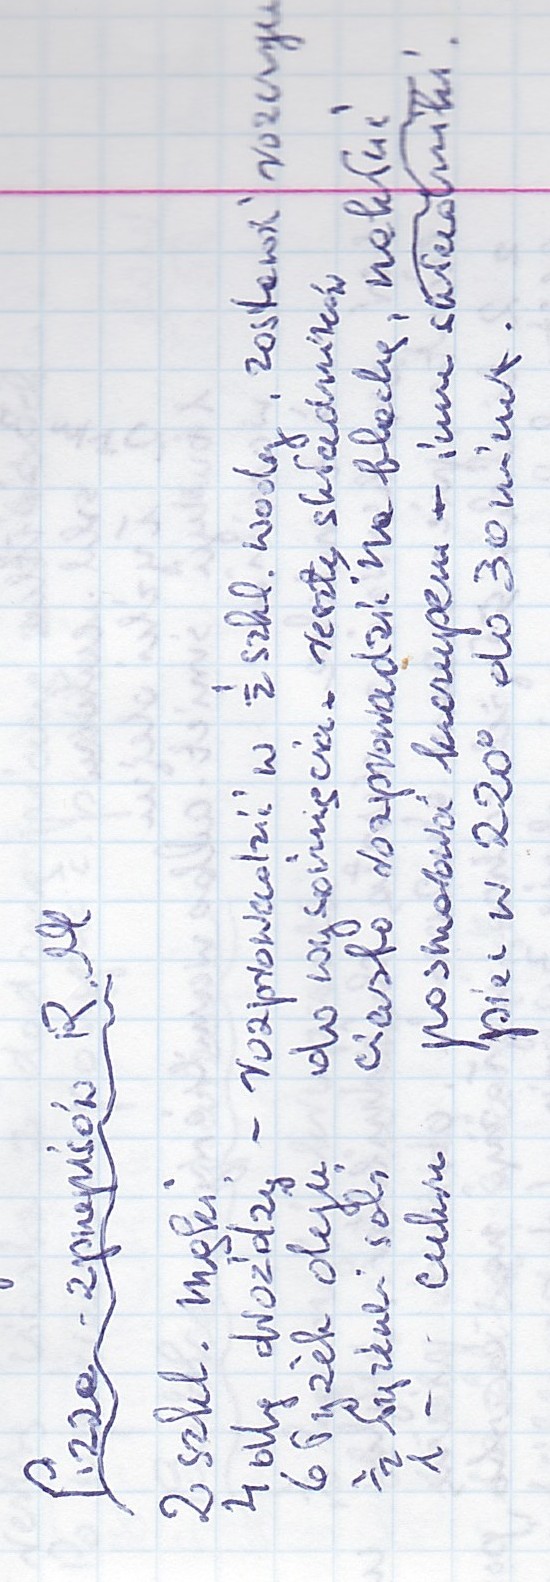 Pizza - z przepisów R. M
2 szkl. mąki
4 dkg drożdży - rozprowadzić w ½ szkl. wody, zostawić rozczyn
6 łyżek oleju do wyrośnięcia - resztę składników
½ łyżeczki soli ciasto rozprowadzić na blachę, nakłuć
1 - - cukru posmarować keczupem + inne składniki.
piec w 220° do 30 minut.